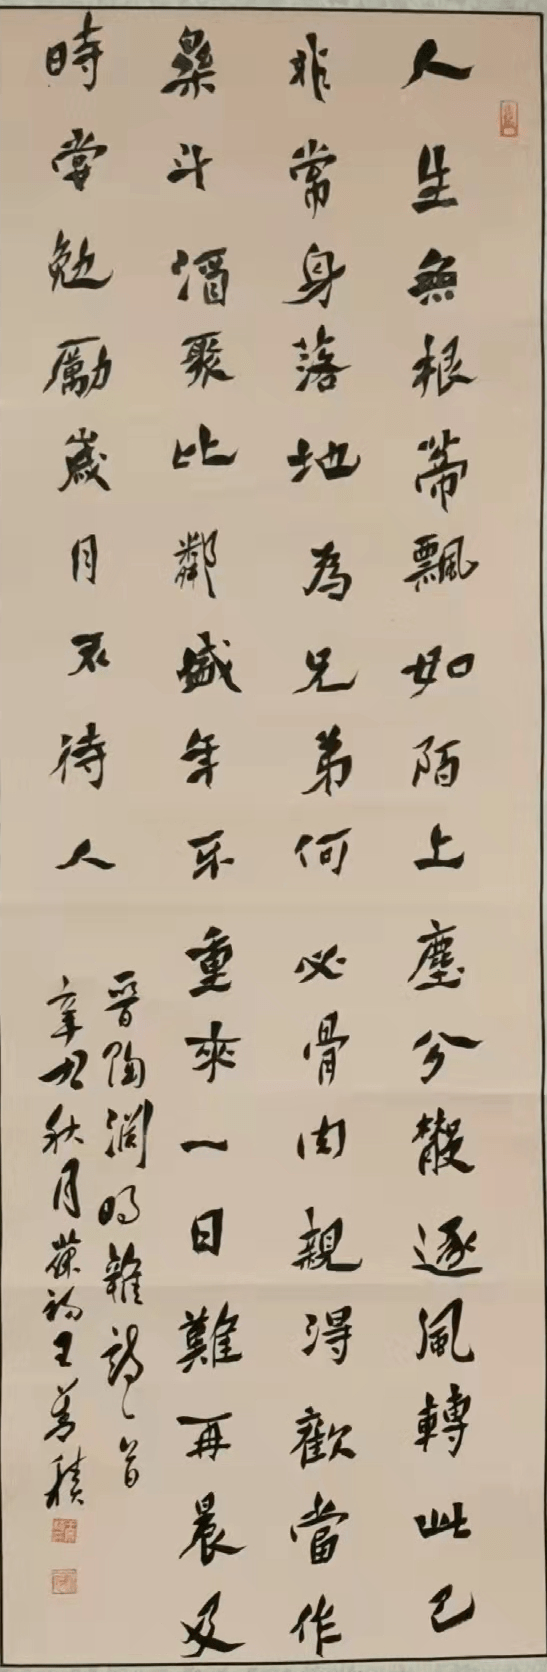 人生無根蒂飄如陌上塵分散逐風轉此已
非常身落地為兄弟何必骨肉親得歡當作
樂斗酒聚比鄰盛年不重來一日難再晨及
時當勉勵歲月不待人
晉陶淵明雜詩一首
辛丑秋月王善積